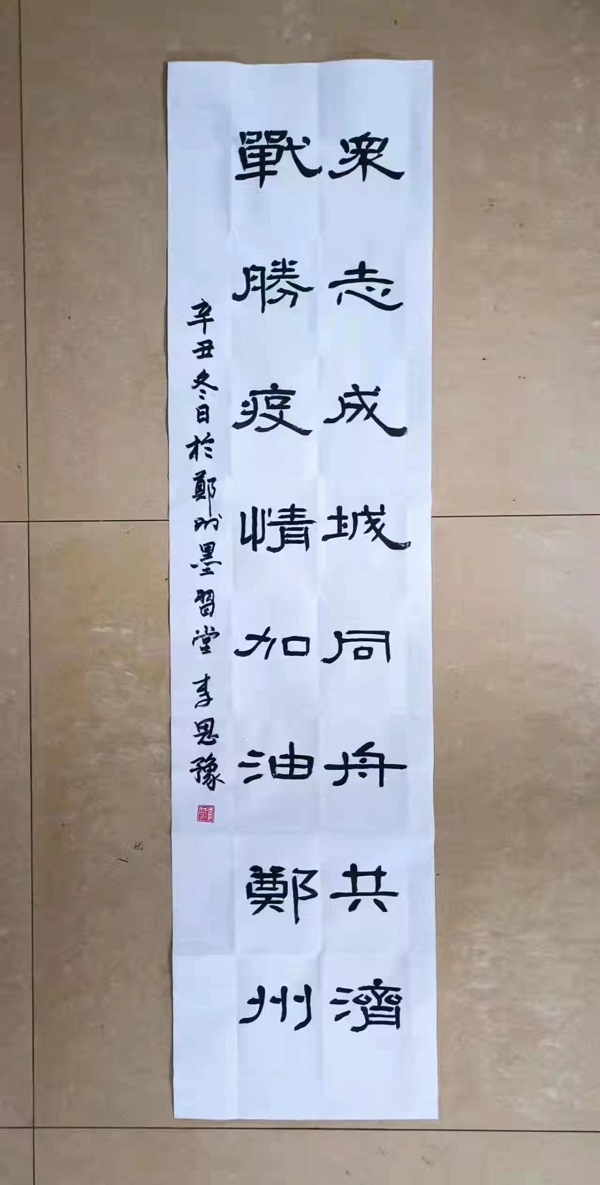 眾志成城同舟共濟
戰勝疫情加油鄭州
辛丑冬日於鄭州墨習堂李思豫